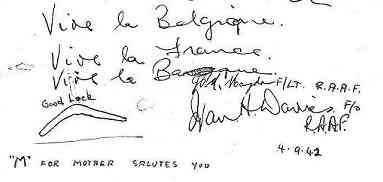 Vive la Belgique.
Vive la France.
Vive la
F/LT. R.A.A.F.
Good Luck
Ivan A. Davies F/O
R.A.A.F.
4.9.42
"M" FOR MOTHER SALUTES YOU